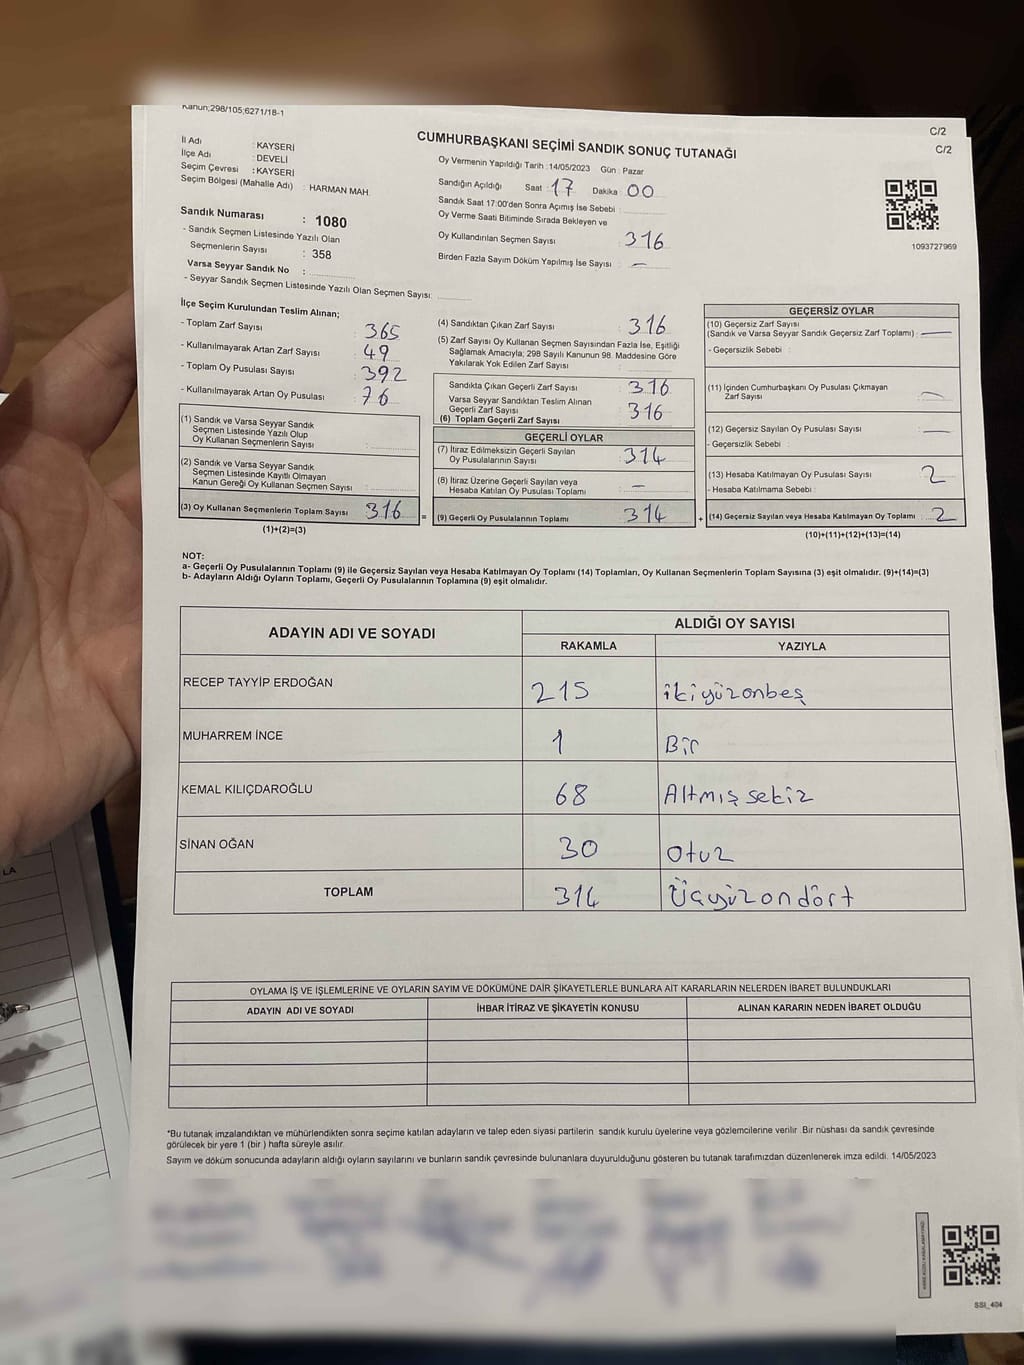 Kanun;298/105;6271/18-1
C/2
C/2
CUMHURBAŞKANI SEÇİMİ SANDIK SONUÇ TUTANAĞI
İl Adı : KAYSERİ
İlçe Adı : DEVELİ
Seçim Çevresi : KAYSERİ
Seçim Bölgesi (Mahalle Adı) : HARMAN MAH.
Oy Vermenin Yapıldığı Tarih :14/05/2023 Gün : Pazar
Sandığın Açıldığı Saat 17 Dakika 00
Sandık Saat 17:00'den Sonra Açımış İse Sebebi :
Oy Verme Saati Bitiminde Sırada Bekleyen ve
Oy Kullandırılan Seçmen Sayısı 316
Birden Fazla Sayım Döküm Yapılmış İse Sayısı : —
1093727969
Sandık Numarası : 1080
- Sandık Seçmen Listesinde Yazılı Olan
Seçmenlerin Sayısı : 358
Varsa Seyyar Sandık No :
- Seyyar Sandık Seçmen Listesinde Yazılı Olan Seçmen Sayısı:
İlçe Seçim Kurulundan Teslim Alınan;
- Toplam Zarf Sayısı : 365
- Kullanılmayarak Artan Zarf Sayısı : 49
- Toplam Oy Pusulası Sayısı : 392
- Kullanılmayarak Artan Oy Pusulası : 76
(1) Sandık ve Varsa Seyyar Sandık
Seçmen Listesinde Yazılı Olup
Oy Kullanan Seçmenlerin Sayısı :
(2) Sandık ve Varsa Seyyar Sandık
Seçmen Listesinde Kayıtlı Olmayan
Kanun Gereği Oy Kullanan Seçmen Sayısı :
(3) Oy Kullanan Seçmenlerin Toplam Sayısı 316
(1)+(2)=(3)
(4) Sandıktan Çıkan Zarf Sayısı : 316
(5) Zarf Sayısı Oy Kullanan Seçmen Sayısından Fazla İse, Eşitliği
Sağlamak Amacıyla; 298 Sayılı Kanunun 98. Maddesine Göre
Yakılarak Yok Edilen Zarf Sayısı :
Sandıkta Çıkan Geçerli Zarf Sayısı : 316
Varsa Seyyar Sandıktan Teslim Alınan
Geçerli Zarf Sayısı : 316
(6) Toplam Geçerli Zarf Sayısı
GEÇERLİ OYLAR
(7) İtiraz Edilmeksizin Geçerli Sayılan
Oy Pusulalarının Sayısı : 314
(8) İtiraz Üzerine Geçerli Sayılan veya
Hesaba Katılan Oy Pusulası Toplamı : —
= (9) Geçerli Oy Pusulalarının Toplamı 314
GEÇERSİZ OYLAR
(10) Geçersiz Zarf Sayısı
(Sandık ve Varsa Seyyar Sandık Geçersiz Zarf Toplamı) : —
- Geçersizlik Sebebi :
(11) İçinden Cumhurbaşkanı Oy Pusulası Çıkmayan
Zarf Sayısı : —
(12) Geçersiz Sayılan Oy Pusulası Sayısı : —
- Geçersizlik Sebebi :
(13) Hesaba Katılmayan Oy Pusulası Sayısı : 2
- Hesaba Katılmama Sebebi :
+ (14) Geçersiz Sayılan veya Hesaba Katılmayan Oy Toplamı : 2
(10)+(11)+(12)+(13)=(14)
NOT:
a- Geçerli Oy Pusulalarının Toplamı (9) ile Geçersiz Sayılan veya Hesaba Katılmayan Oy Toplamı (14) Toplamları, Oy Kullanan Seçmenlerin Toplam Sayısına (3) eşit olmalıdır. (9)+(14)=(3)
b- Adayların Aldığı Oyların Toplamı, Geçerli Oy Pusulalarının Toplamına (9) eşit olmalıdır.
ADAYIN ADI VE SOYADI
ALDIĞI OY SAYISI
RAKAMLA YAZIYLA
RECEP TAYYİP ERDOĞAN 215 ikiyüzonbeş
MUHARREM İNCE 1 Bir
KEMAL KILIÇDAROĞLU 68 Altmış sekiz
SİNAN OĞAN 30 Otuz
TOPLAM 314 Üçyüzondört
OYLAMA İŞ VE İŞLEMLERİNE VE OYLARIN SAYIM VE DÖKÜMÜNE DAİR ŞİKAYETLERLE BUNLARA AİT KARARLARIN NELERDEN İBARET BULUNDUKLARI
ADAYIN ADI VE SOYADI İHBAR İTİRAZ VE ŞİKAYETİN KONUSU ALINAN KARARIN NEDEN İBARET OLDUĞU
*Bu tutanak imzalandıktan ve mühürlendikten sonra seçime katılan adayların ve talep eden siyasi partilerin sandık kurulu üyelerine veya gözlemcilerine verilir. Bir nüshası da sandık çevresinde
görülecek bir yere 1 (bir ) hafta süreyle asılır.
Sayım ve döküm sonucunda adayların aldığı oyların sayılarını ve bunların sandık çevresinde bulunanlara duyurulduğunu gösteren bu tutanak tarafımızdan düzenlenerek imza edildi. 14/05/2023
SSI_404
LA